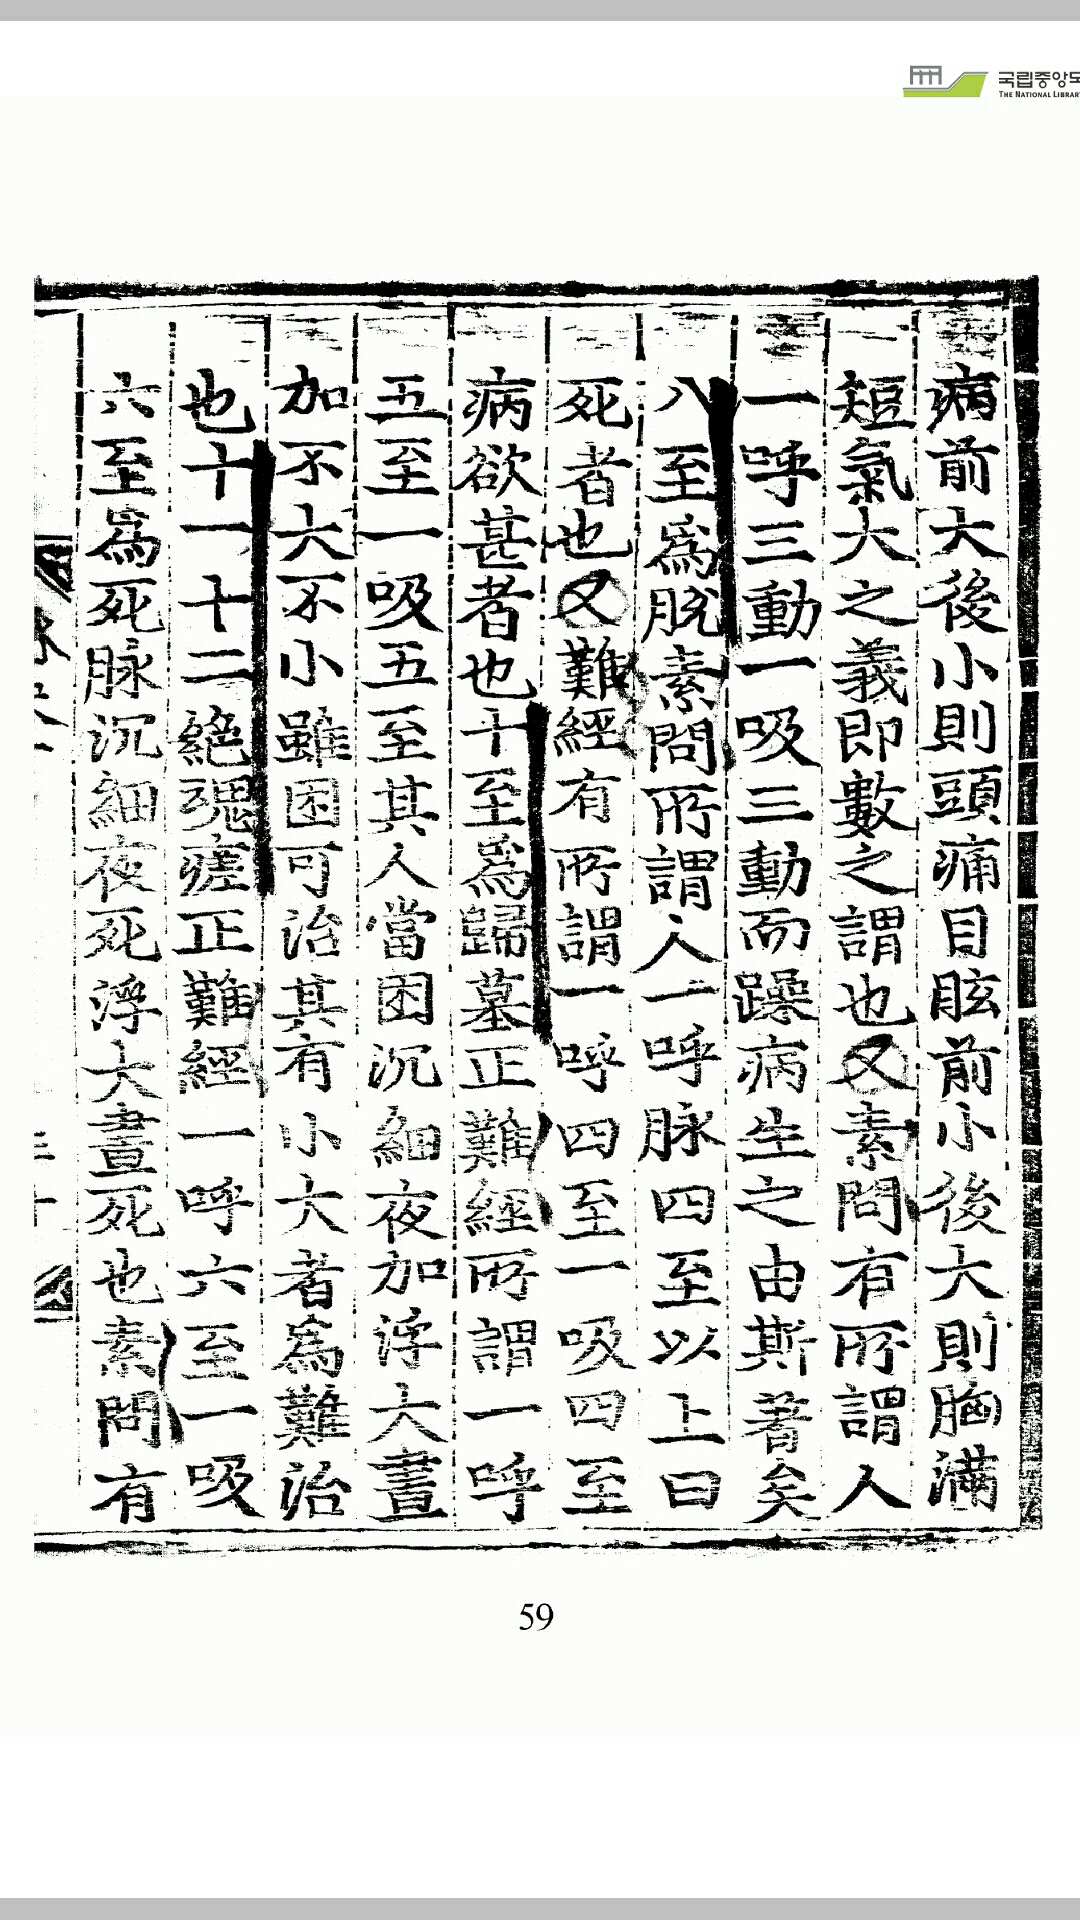 국립중앙도
THE NATIONAL LIBRAR
病前大後小則頭痛目眩前小後大則胸滿
短氣大之義即數之謂也又素問有所謂人
一呼三動一吸三動而躁病生之由斯著矣
八至爲脫素問所謂人一呼脉四至以上曰
死者也又難經有所謂一呼四至一吸四至
病欲甚者也十至爲歸墓正難經所謂一呼
五至一吸五至其人當困沉細夜加浮大晝
加不大不小雖困可治其有小大者爲難治
也十一十二絶魂瘥正難經一呼六至一吸
六至爲死脉沉細夜死浮大晝死也素問有
59